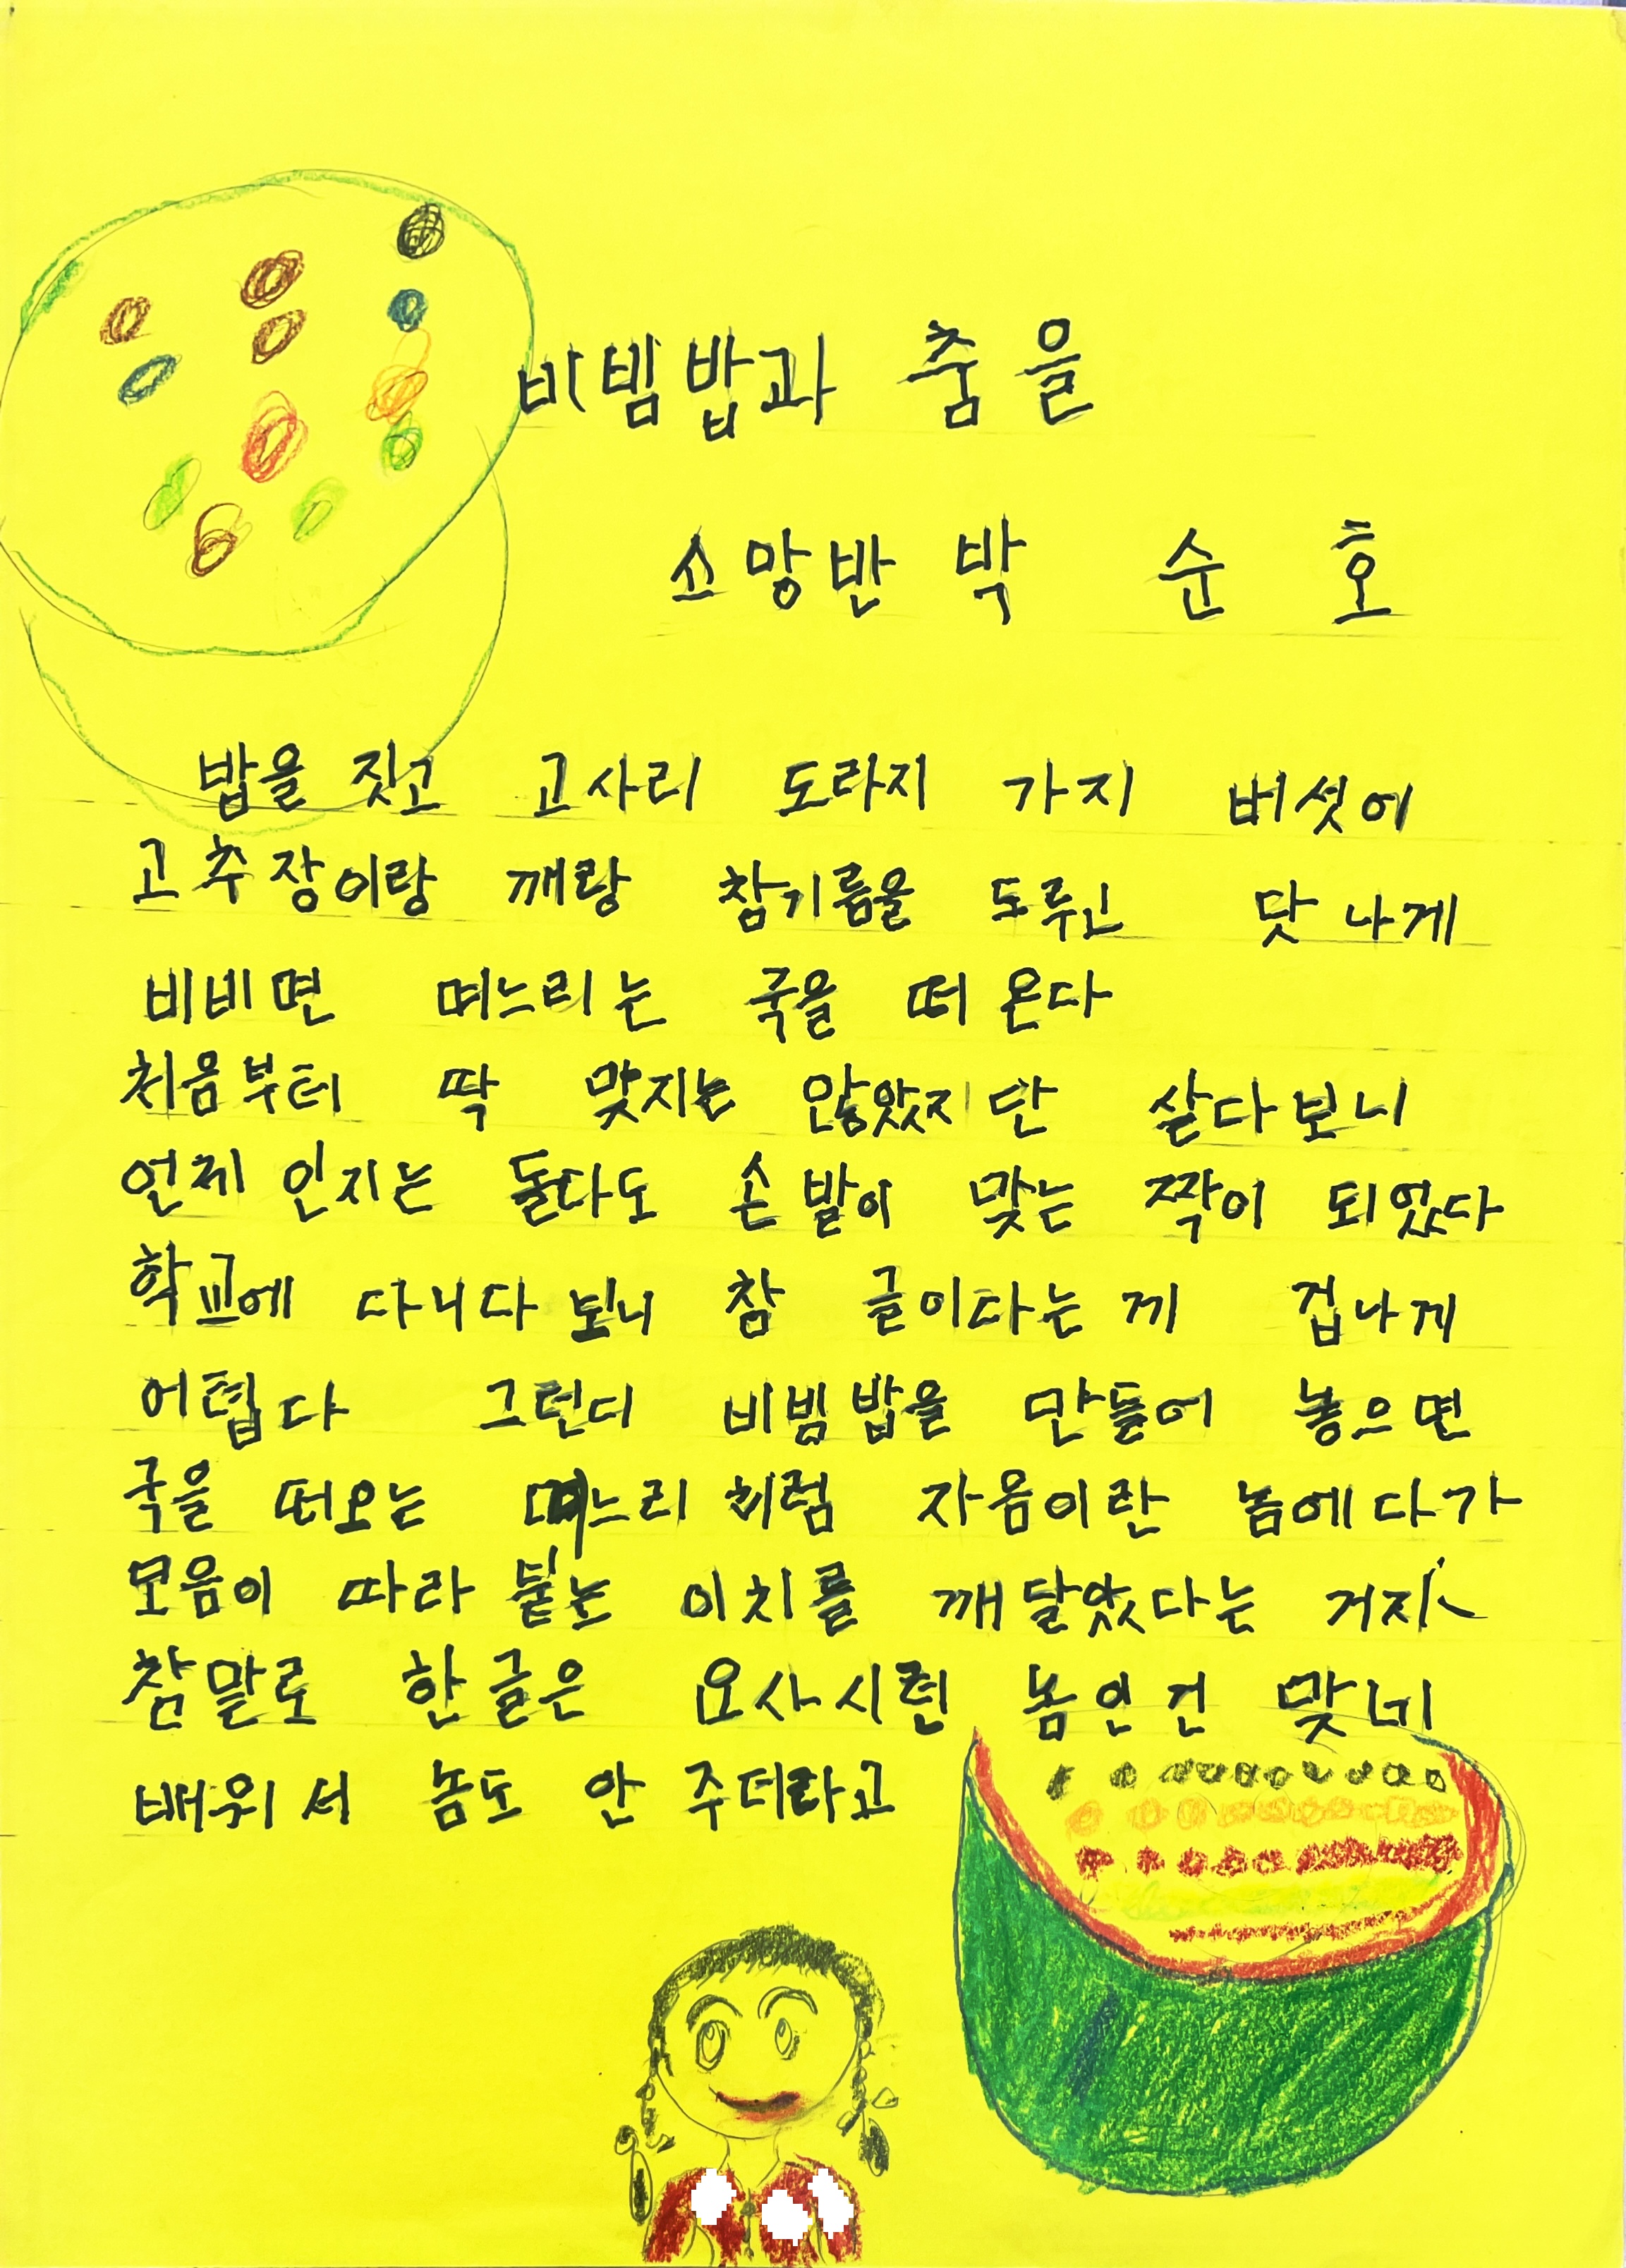 비빔밥과 춤을
소망반 박 순 호
밥을 짓고 고사리 도라지 가지 버섯에
고추장이랑 깨랑 참기름을 도루고 맛나게
비비면 며느리는 국을 떠 온다
처음부터 딱 맞지는 않았지만 살다보니
언제 인지는 둘다도 손발이 맞는 짝이 되었다
학교에 다니다 보니 참 글이다는 끼 겁나게
어렵다 그런디 비빔밥을 만들어 놓으면
국을 떠오는 며느리 처럼 자음이란 놈에다가
모음이 따라 붙는 이치를 깨달았다는 거지
참말로 한글은 요사시런 놈인건 맞네
배워서 놈도 안 주더라고